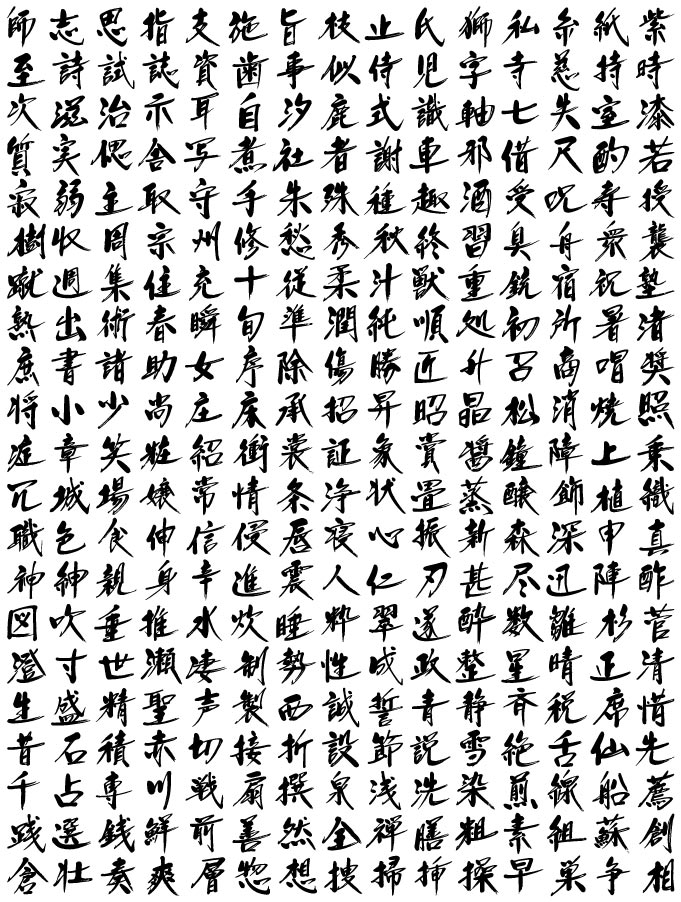 師志思指支施旨枝止氏獅私糸紙紫
至詩試誌資歯事似侍児字寺慈持時
次滋治示耳自汐鹿式識軸七失室漆
質実偲舎写煮社者謝車邪借尺酌若
寂弱主取守手朱殊種趣酒受呪寿授
樹収周宗州修愁秀秋終習臭舟衆襲
蹴週集住充十従柔汁獣重銃宿祝塾
熟出術春瞬旬準潤純順処初所暑渚
庶書諸助女序除傷勝匠升召商唱奨
将小少尚庄床承招昇昭晶松消焼照
症章笑粧紹衝裳証象賞醤鐘障上乗
冗城場嬢常情条浄状畳蒸醸飾植織
職色食伸信侵唇寝心振新森深申真
神紳親身辛進震人仁刃甚尽迅陣酢
図吹垂推水炊睡粋翠遂酔数雛杉菅
澄寸世瀬凄制勢性成政整星晴正清
生盛精聖声製西誠誓青静斉税席惜
昔石積赤切接折設節説雪絶舌仙先
千占専川戦扇撰泉浅洗染煎線船薦
践選銭鮮前善然全禅膳粗素組蘇創
倉壮奏爽層惣想捜掃挿操早巣争相